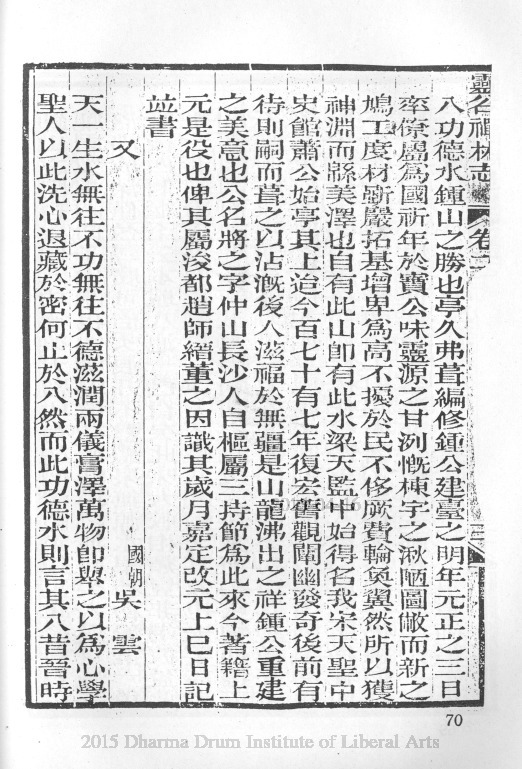 靈谷禪林志 卷二
八功德水鍾山之勝也亭久弗葺編修鍾公建臺之明年元正之三日
率僚屬爲國祈年於寶公味靈源之甘洌慨棟宇之湫陋圖敞而新之
鳩工度材斸巖拓基增卑爲高不擾於民不侈厥費輪奐翼然所以獲
神淵而緜美澤也自有此山卽有此水梁天監中始得名我宋天聖中
史館蕭公始亭其上迨今百七十有七年復宏舊觀闡幽發奇後前有
待則嗣而葺之以沾漑後人滋福於無疆是山龍沸出之祥鍾公重建
之美意也公名將之字仲山長沙人自樞屬三持節爲此來今著籍上
元是役也俾其屬浚都趙師縉董之因識其歲月嘉定改元上巳日記
並書
又 國朝 吳雲
天一生水無往不功無往不德滋潤兩儀膏澤萬物卽舉之以爲心學
聖人以此洗心退藏於密何止於八然而此功德水則言其八昔晉時
70
2015 Dharma Drum Institute of Liberal Arts